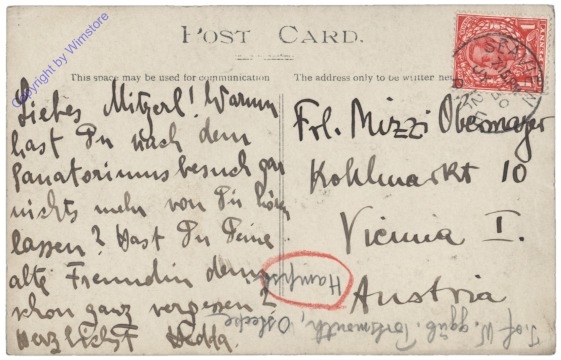 Copyright by Wimstore
POST CARD.
This space may be used for communication
The address only to be written here
Liebes Mitzerl! Warum
hast Du nach dem
Sanatoriumsbesuch gar
nichts mehr von Dir hören
lassen? Hast Du Deine
alte Freundin denn
schon ganz vergessen?
Herzlichst Hedda.
Frl. Mizzi Obermayer
Kohlmarkt 10
Vienna I.
Austria
SEAVIEW
I. of W. ggüb. Portsmouth, Ostecke